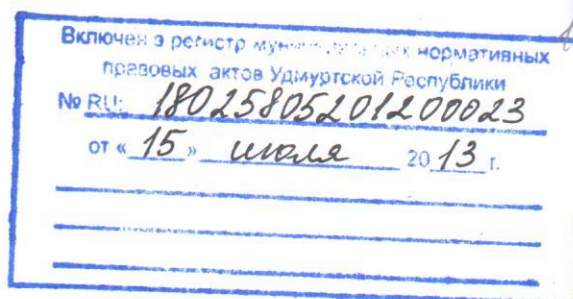 Включен в регистр муниципальных нормативных
правовых актов Удмуртской Республики
№ RU: 18025805201200023
от « 15 » июля 2013 г.